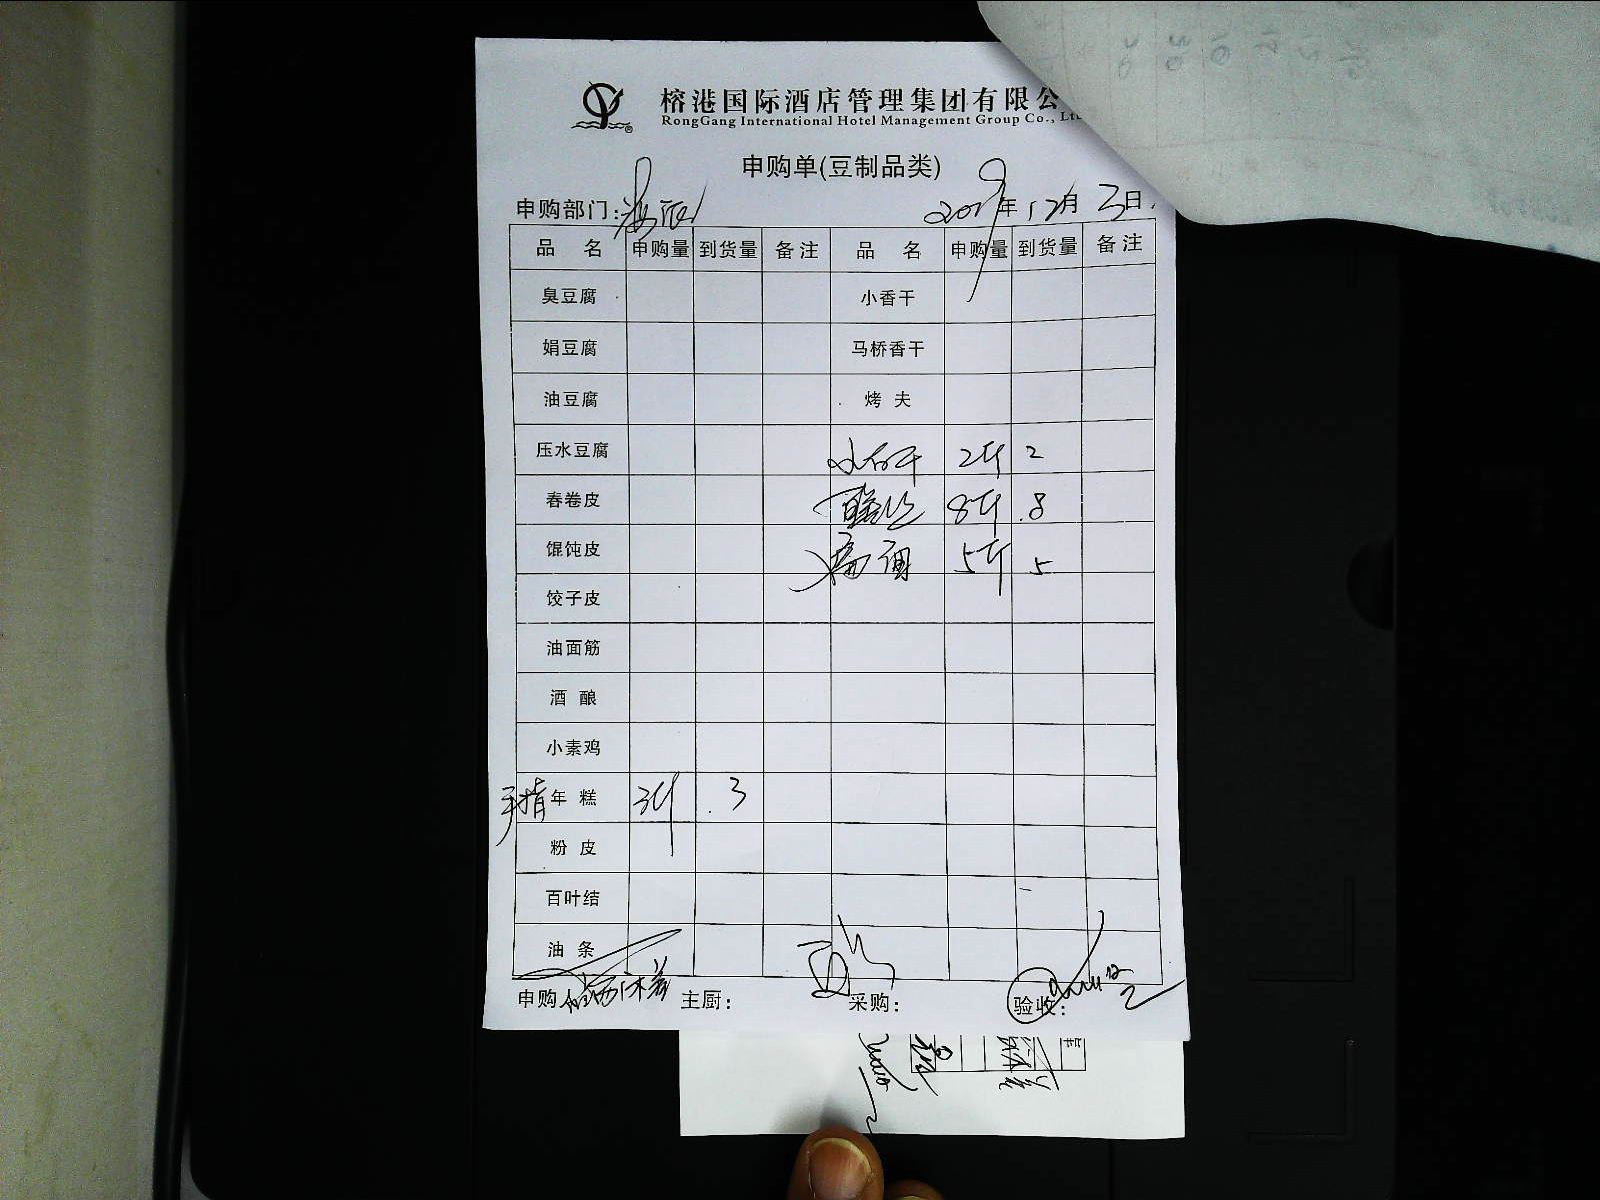 榕港国际酒店管理集团有限公
RongGang International Hotel Management Group Co., Lt
申购单(豆制品类)
申购部门: 2019年12月3日
品 名 申购量 到货量 备注 品 名 申购量 到货量 备注
臭豆腐 小香干
娟豆腐 马桥香干
油豆腐 烤 夫
压水豆腐 干 2斤 2
春卷皮 8斤 8
馄饨皮 5斤 5
饺子皮
油面筋
酒 酿
小素鸡
手指年 糕 3斤 3
粉 皮
百叶结
油 条
申购 主厨: 采购: 验收: